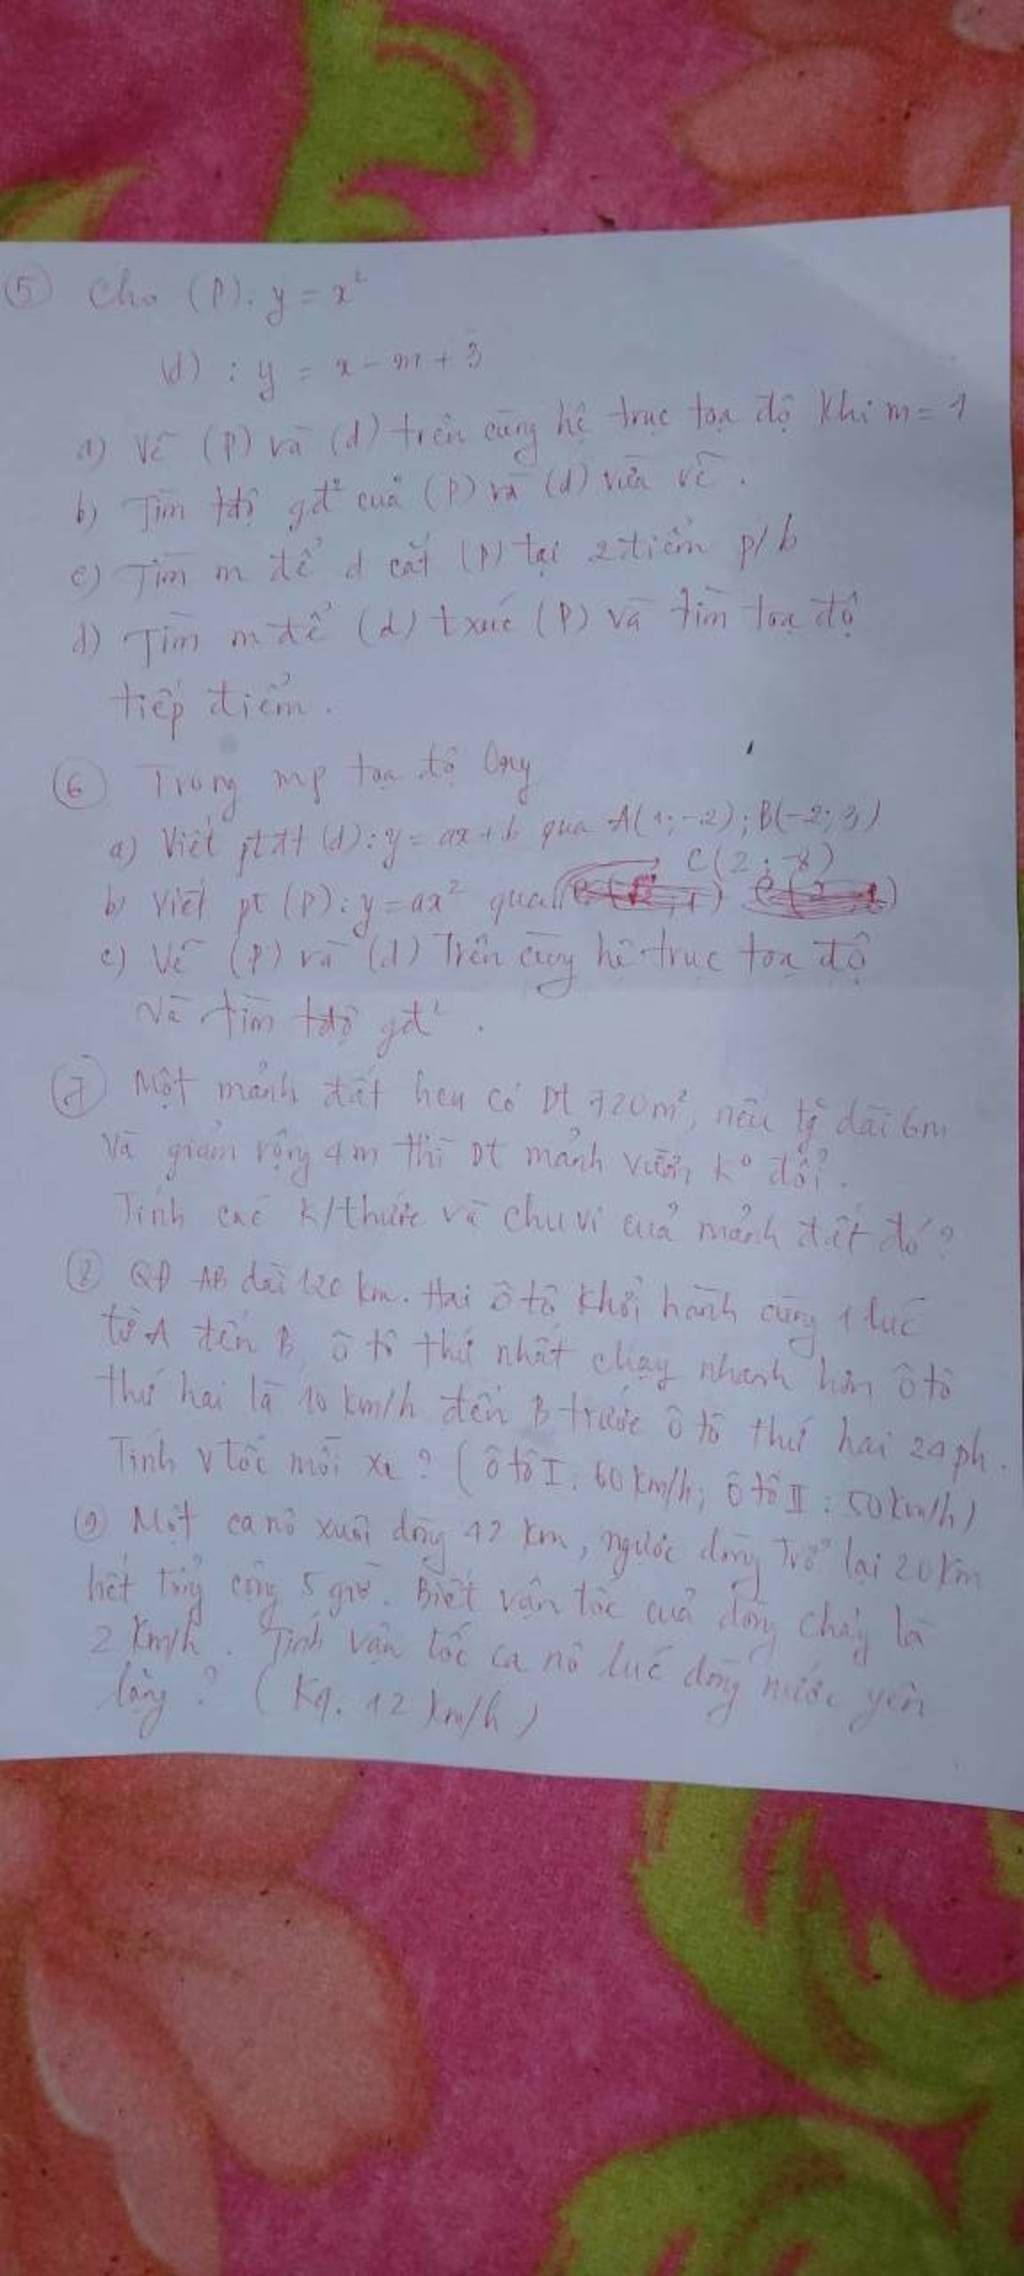 ⑤ Cho (P): y = x²
(d) : y = x - m + 3
a) Vẽ (P) và (d) trên cùng hệ trục toạ độ khi m = 1
b) Tìm tđộ gđ² của (P) và (d) vừa vẽ.
c) Tìm m để d cắt (P) tại 2 điểm p/b
d) Tìm m để (d) t xúc (P) và tìm toạ độ
tiếp điểm.
⑥ Trong mp toạ độ Oxy
a) Viết ptđt (d): y = ax + b qua A(1; -2); B(-2; 3)
C(2; -8)
b) Viết pt (P): y = ax² qua
c) Vẽ (P) và (d) trên cùng hệ trục toạ độ
và tìm tđộ gđ².
⑦ Một mảnh đất hcn có Dt 720m², nếu tg dài 6m
và giảm rộng 4m thì Dt mảnh vườn k° đổi.
Tính các k/thước và chu vi của mảnh đất đó?
⑧ QĐ AB dài 120 km. Hai ô tô khởi hành cùng 1 lúc
từ A đến B, ô tô thứ nhất chạy nhanh hơn ô tô
thứ hai là 10 km/h đến B trước ô tô thứ hai 24 ph.
Tính v tốc mỗi xe? (ô tô I: 60 km/h; ô tô II: 50 km/h)
⑨ Một ca nô xuôi dòng 42 km, ngược dòng trở lại 20 km
hết tổng cộng 5 giờ. Biết vận tốc của dòng chảy là
2 km/h. Tính vận tốc ca nô lúc dòng nước yên
lặng? (Kq. 12 km/h)